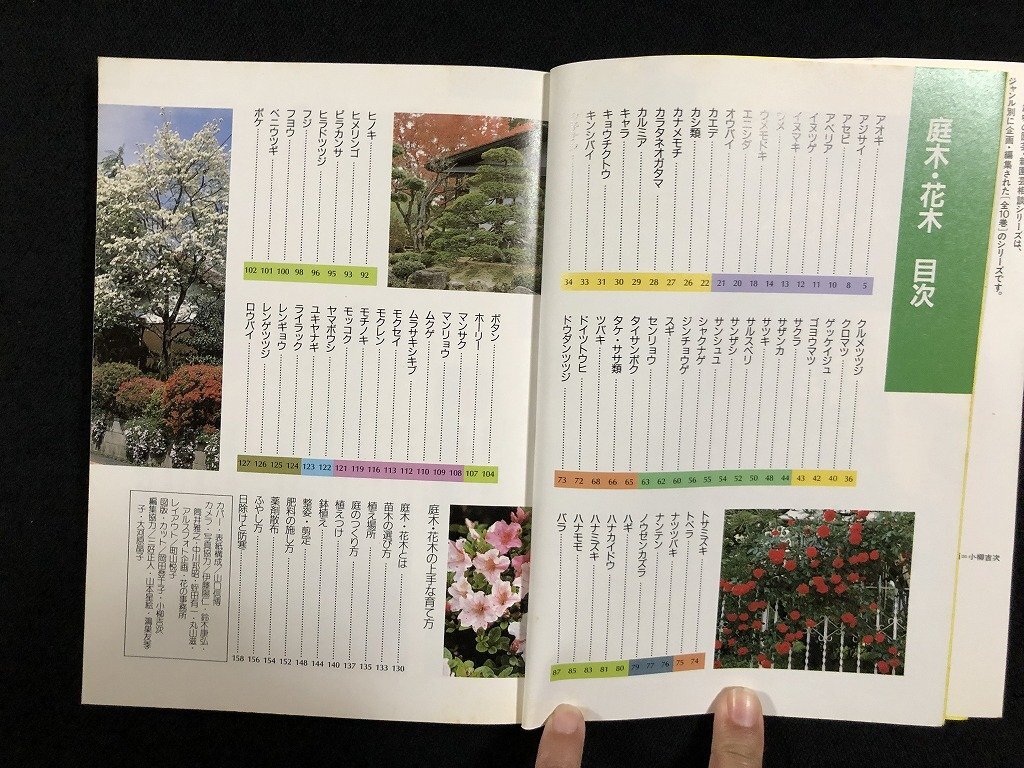 庭木・花木 目次
アオキ 5
アジサイ 8
アセビ 10
アベリア 11
イヌツゲ 12
イヌマキ 13
ウメ 14
ウメモドキ 18
エニシダ 20
オウバイ 21
カエデ 22
カシ類 26
カナメモチ 27
カラタネオガタマ 28
カルミア 29
キャラ 30
キョウチクトウ 31
キンシバイ 33
34
クルメツツジ 36
クロマツ 40
ゲッケイジュ 42
ゴヨウマツ 43
サクラ 44
サザンカ 48
サツキ 50
サルスベリ 52
サンザシ 54
サンシュユ 55
シャクナゲ 56
ジンチョウゲ 60
スギ 61
センリョウ 62
タイサンボク 63
タケ・ササ類 65
ツバキ 66
ドイツトウヒ 68
ドウダンツツジ 73
トサミズキ 74
トベラ 75
ナツツバキ 76
ナンテン 77
ノウゼンカズラ 79
ハギ 80
ハナカイドウ 81
ハナミズキ 83
ハナモモ 85
バラ 87
ヒノキ 92
ヒメリンゴ 93
ピラカンサ 95
ヒラドツツジ 96
フジ 98
フヨウ 100
ベニウツギ 101
ボケ 102
ボタン 104
ホーリー 107
マンサク 108
マンリョウ 109
ムクゲ 110
ムラサキシキブ 112
モクセイ 113
モクレン 116
モチノキ 119
モッコク 121
ヤマボウシ 122
ユキヤナギ 123
ライラック 124
レンギョウ 125
レンゲツツジ 126
ロウバイ 127
庭木・花木の上手な育て方
庭木・花木とは 130
苗木の選び方 133
植え場所 135
庭のつくり方 137
植えつけ 140
鉢植え 144
整姿・剪定 148
肥料の施し方 152
薬剤散布 154
ふやし方 156
日除けと防寒 158
カバー・表紙構成／山口信博
レイアウト／町山悦子
ジャンル別に企画・編集された「全10巻」のシリーズです。
＝小柳吉次